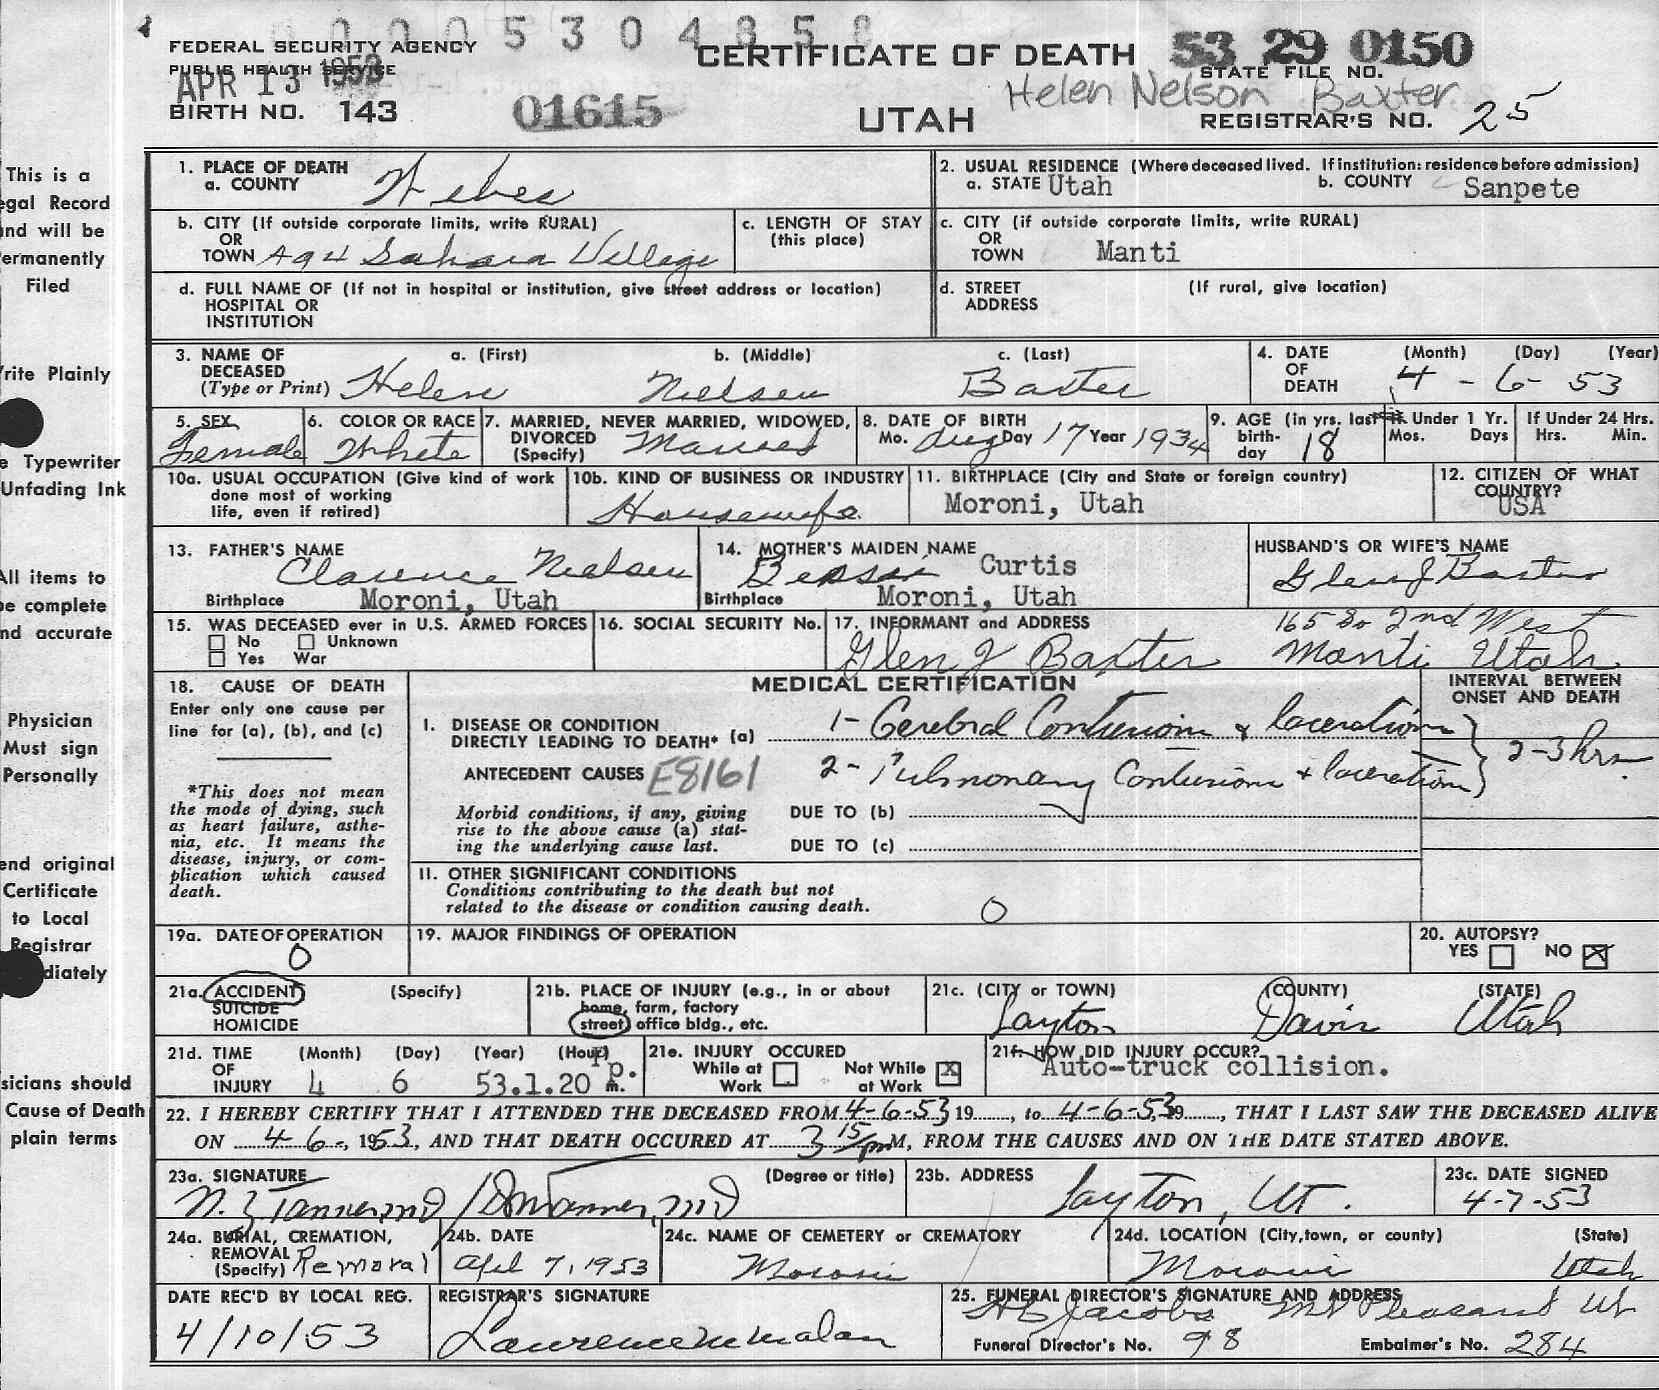 0 0 0 0 5 3 0 4 8 5 8
FEDERAL SECURITY AGENCY
PUBLIC HEALTH SERVICE
APR 13 1953
BIRTH NO. 143
01615
CERTIFICATE OF DEATH
UTAH
53 29 0150
STATE FILE NO.
Helen Nelson Baxter
REGISTRAR'S NO. 25
This is a
egal Record
and will be
ermanently
Filed
rite Plainly
e Typewriter
Unfading Ink
All items to
be complete
nd accurate
Physician
Must sign
Personally
end original
Certificate
to Local
Registrar
diately
sicians should
Cause of Death
plain terms
1. PLACE OF DEATH
a. COUNTY Weber
2. USUAL RESIDENCE (Where deceased lived. If institution: residence before admission)
a. STATE Utah b. COUNTY Sanpete
b. CITY (If outside corporate limits, write RURAL)
OR
TOWN Sahara Village
c. LENGTH OF STAY
(this place)
c. CITY (if outside corporate limits, write RURAL)
OR
TOWN Manti
d. FULL NAME OF (If not in hospital or institution, give street address or location)
HOSPITAL OR
INSTITUTION
d. STREET (If rural, give location)
ADDRESS
3. NAME OF DECEASED (Type or Print)
a. (First) b. (Middle) c. (Last)
Helen Nielsen Baxter
4. DATE OF DEATH (Month) (Day) (Year)
4 - 6 - 53
5. SEX
Female
6. COLOR OR RACE
White
7. MARRIED, NEVER MARRIED, WIDOWED,
DIVORCED
(Specify) Married
8. DATE OF BIRTH
Mo. Aug Day 17 Year 1934
9. AGE (in yrs. last
birth-
day 18
If Under 1 Yr.
Mos. Days
If Under 24 Hrs.
Hrs. Min.
10a. USUAL OCCUPATION (Give kind of work
done most of working
life, even if retired)
10b. KIND OF BUSINESS OR INDUSTRY
Housewife
11. BIRTHPLACE (City and State or foreign country)
Moroni, Utah
12. CITIZEN OF WHAT
COUNTRY?
USA
13. FATHER'S NAME
Clarence Nielsen
Birthplace Moroni, Utah
14. MOTHER'S MAIDEN NAME
Curtis
Birthplace Moroni, Utah
HUSBAND'S OR WIFE'S NAME
Glen J Baxter
15. WAS DECEASED ever in U.S. ARMED FORCES
No Unknown
Yes War
16. SOCIAL SECURITY No.
17. INFORMANT and ADDRESS
165 So 2nd West
Glen J Baxter Manti Utah
18. CAUSE OF DEATH
Enter only one cause per
line for (a), (b), and (c)
*This does not mean
the mode of dying, such
as heart failure, asthe-
nia, etc. It means the
disease, injury, or com-
plication which caused
death.
MEDICAL CERTIFICATION
INTERVAL BETWEEN
ONSET AND DEATH
I. DISEASE OR CONDITION
DIRECTLY LEADING TO DEATH* (a) 1- Cerebral Contusion & laceration
ANTECEDENT CAUSES E8161 2- Pulmonary Contusion & laceration
2-3 hrs.
Morbid conditions, if any, giving
rise to the above cause (a) stat-
ing the underlying cause last.
DUE TO (b)
DUE TO (c)
11. OTHER SIGNIFICANT CONDITIONS
Conditions contributing to the death but not
related to the disease or condition causing death.
0
19a. DATE OF OPERATION
0
19. MAJOR FINDINGS OF OPERATION
20. AUTOPSY?
YES NO X
21a. ACCIDENT (Specify)
SUICIDE
HOMICIDE
21b. PLACE OF INJURY (e.g., in or about
home, farm, factory
street, office bldg., etc.
21c. (CITY or TOWN) (COUNTY) (STATE)
Layton Davis Utah
21d. TIME
OF
INJURY
(Month) (Day) (Year) (Hour)
4 6 53.1.20 p.m.
21e. INJURY OCCURED
While at Work
Not While at Work X
21f. HOW DID INJURY OCCUR?
Auto-truck collision.
22. I HEREBY CERTIFY THAT I ATTENDED THE DECEASED FROM 4-6-53 19......, to 4-6-53 19......, THAT I LAST SAW THE DECEASED ALIVE
ON 4-6-, 1953, AND THAT DEATH OCCURED AT 3 15/pm M, FROM THE CAUSES AND ON THE DATE STATED ABOVE.
23a. SIGNATURE (Degree or title)
Tanner, md / Tanner, MD
23b. ADDRESS
Layton, Ut.
23c. DATE SIGNED
4-7-53
24a. BURIAL, CREMATION,
REMOVAL
(Specify) Removal
24b. DATE
April 7, 1953
24c. NAME OF CEMETERY or CREMATORY
Moroni
24d. LOCATION (City, town, or county) (State)
Moroni Utah
DATE REC'D BY LOCAL REG.
4/10/53
REGISTRAR'S SIGNATURE
Lawrence M Malan
25. FUNERAL DIRECTOR'S SIGNATURE AND ADDRESS
Jacobs Mt Pleasant Ut
Funeral Director's No. 98 Embalmer's No. 284